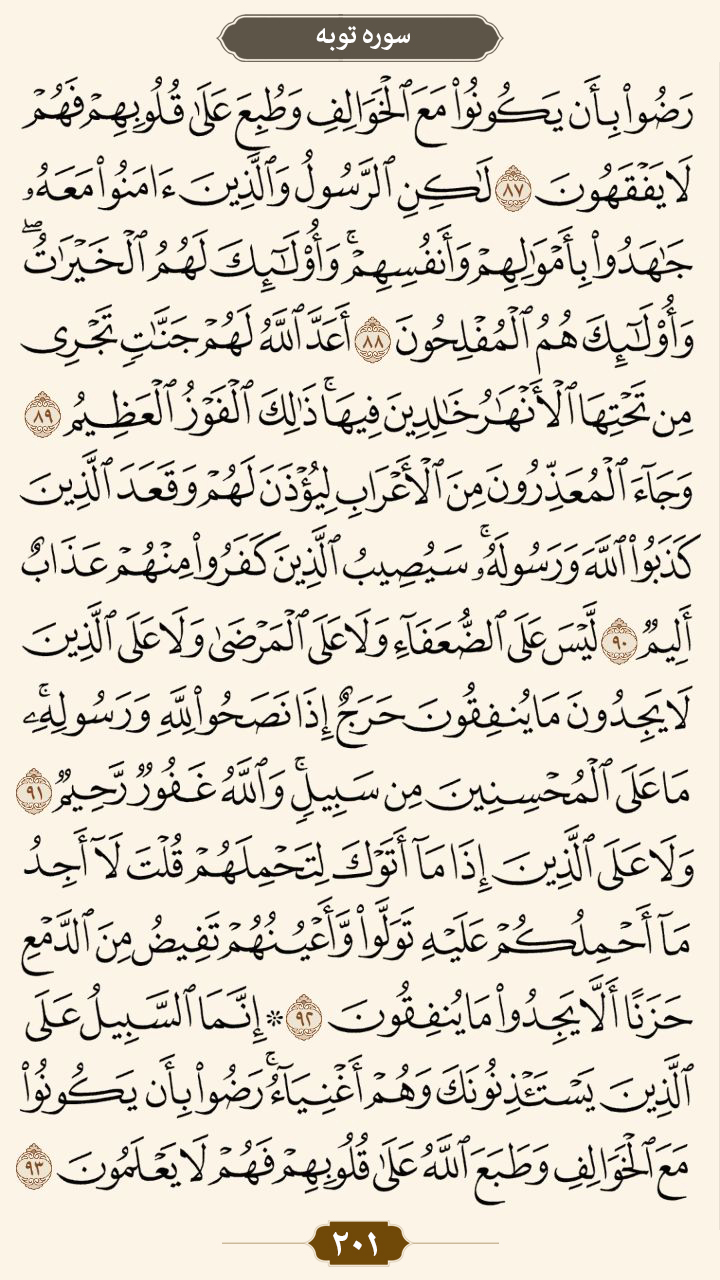 سوره توبه
رَضُوا۟ بِأَن يَكُونُوا۟ مَعَ ٱلْخَوَالِفِ وَطُبِعَ عَلَىٰ قُلُوبِهِمْ فَهُمْ
لَا يَفْقَهُونَ ٨٧ لَٰكِنِ ٱلرَّسُولُ وَٱلَّذِينَ ءَامَنُوا۟ مَعَهُۥ
جَٰهَدُوا۟ بِأَمْوَٰلِهِمْ وَأَنفُسِهِمْ ۚ وَأُو۟لَٰٓئِكَ لَهُمُ ٱلْخَيْرَٰتُ ۖ
وَأُو۟لَٰٓئِكَ هُمُ ٱلْمُفْلِحُونَ ٨٨ أَعَدَّ ٱللَّهُ لَهُمْ جَنَّٰتٍ تَجْرِى
مِن تَحْتِهَا ٱلْأَنْهَٰرُ خَٰلِدِينَ فِيهَا ۚ ذَٰلِكَ ٱلْفَوْزُ ٱلْعَظِيمُ ٨٩
وَجَآءَ ٱلْمُعَذِّرُونَ مِنَ ٱلْأَعْرَابِ لِيُؤْذَنَ لَهُمْ وَقَعَدَ ٱلَّذِينَ
كَذَبُوا۟ ٱللَّهَ وَرَسُولَهُۥ ۚ سَيُصِيبُ ٱلَّذِينَ كَفَرُوا۟ مِنْهُمْ عَذَابٌ
أَلِيمٌ ٩٠ لَّيْسَ عَلَى ٱلضُّعَفَآءِ وَلَا عَلَى ٱلْمَرْضَىٰ وَلَا عَلَى ٱلَّذِينَ
لَا يَجِدُونَ مَا يُنفِقُونَ حَرَجٌ إِذَا نَصَحُوا۟ لِلَّهِ وَرَسُولِهِۦ ۚ
مَا عَلَى ٱلْمُحْسِنِينَ مِن سَبِيلٍ ۚ وَٱللَّهُ غَفُورٌ رَّحِيمٌ ٩١
وَلَا عَلَى ٱلَّذِينَ إِذَا مَآ أَتَوْكَ لِتَحْمِلَهُمْ قُلْتَ لَآ أَجِدُ
مَآ أَحْمِلُكُمْ عَلَيْهِ تَوَلَّوا۟ وَّأَعْيُنُهُمْ تَفِيضُ مِنَ ٱلدَّمْعِ
حَزَنًا أَلَّا يَجِدُوا۟ مَا يُنفِقُونَ ٩٢ * إِنَّمَا ٱلسَّبِيلُ عَلَى
ٱلَّذِينَ يَسْتَـْٔذِنُونَكَ وَهُمْ أَغْنِيَآءُ ۚ رَضُوا۟ بِأَن يَكُونُوا۟
مَعَ ٱلْخَوَالِفِ وَطَبَعَ ٱللَّهُ عَلَىٰ قُلُوبِهِمْ فَهُمْ لَا يَعْلَمُونَ ٩٣
٢٠١